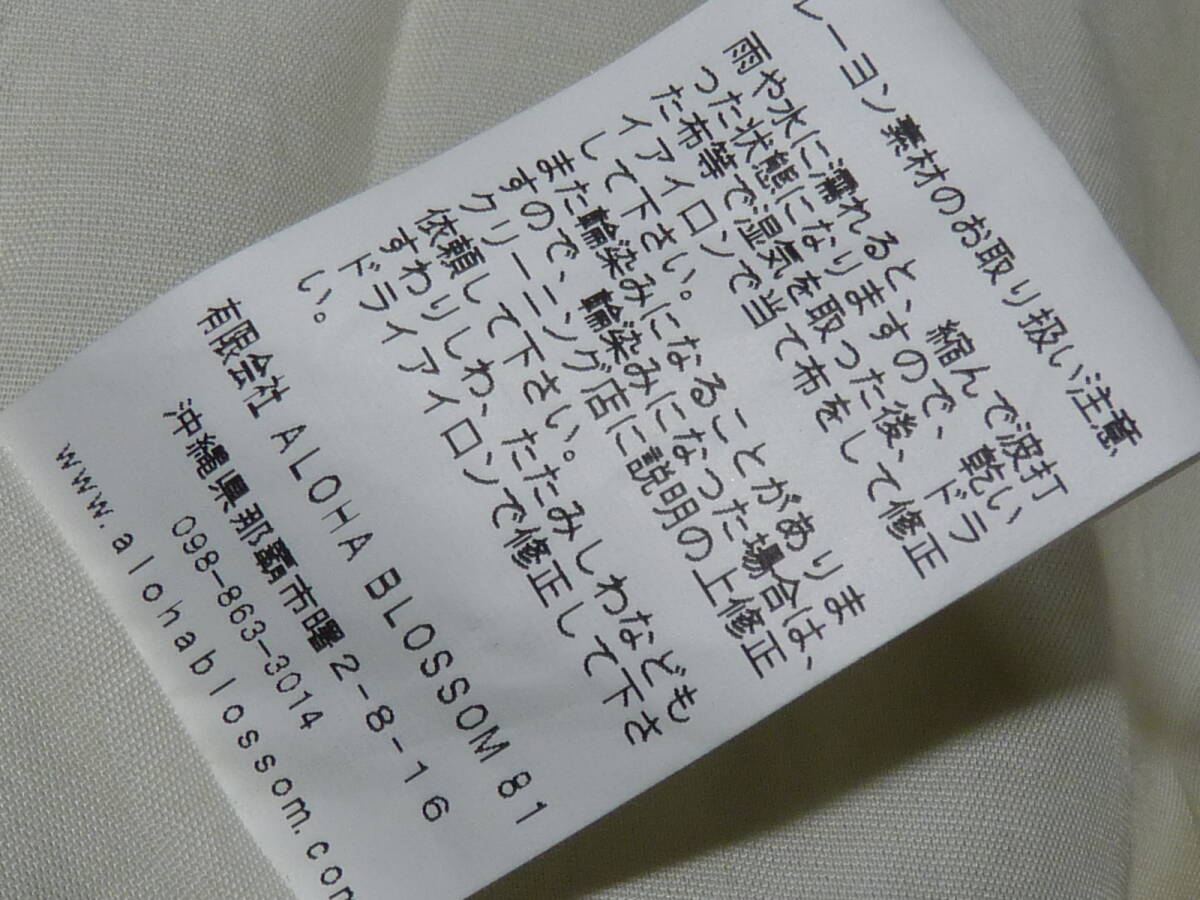 レーヨン素材のお取り扱い注意
雨や水に濡れると、縮んで波打
った状態になりますので、乾い
た布等で湿気を取った後、ドラ
イアイロンで当て布をして修正
して下さい。
また輪染みになることがありま
すので、輪染みになった場合は、
クリーニング店に説明の上修正
依頼して下さい。
すわりしわ、たたみしわなども
ドライアイロンで修正して下さ
い。
有限会社 ALOHA BLOSSOM 81
沖縄県那覇市曙2-8-16
098-863-3014
www.alohablossom.com